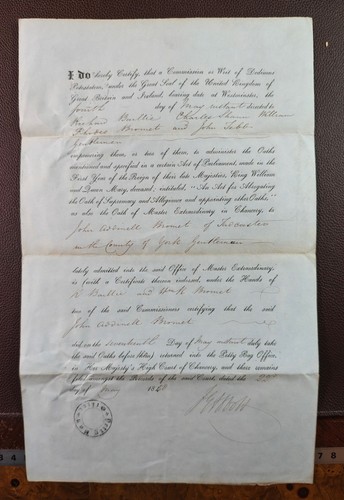 I do hereby Certify, that a Commission or Writ of Dedimus
Potestatem, under the Great Seal of the United Kingdom of
Great Britain and Ireland, bearing date at Westminster, the
fourth day of May instant directed to
Richard Charles William
Bromet and John
Gentlemen
empowering them, or two of them, to administer the Oaths
mentioned and specified in a certain Act of Parliament, made in the
First Year of the Reign of their late Majesties, King William
and Queen Mary, deceased, intituled, "An Act for Abrogating
the Oath of Supremacy and Allegiance and appointing other Oaths,"
as also the Oath of Master Extraordinary in Chancery, to
John Bromet of
in the County of York Gentleman
lately admitted into the said Office of Master Extraordinary,
is (with a Certificate thereon indorsed, under the Hands of
R and Bromet
two of the said Commissioners certifying that the said
John Bromet
did on the seventeenth Day of May instant duly take
the said Oaths before them) returned into the Petty Bag Office,
in Her Majesty's High Court of Chancery, and there remains
the Records of the said Court, dated the
day of May